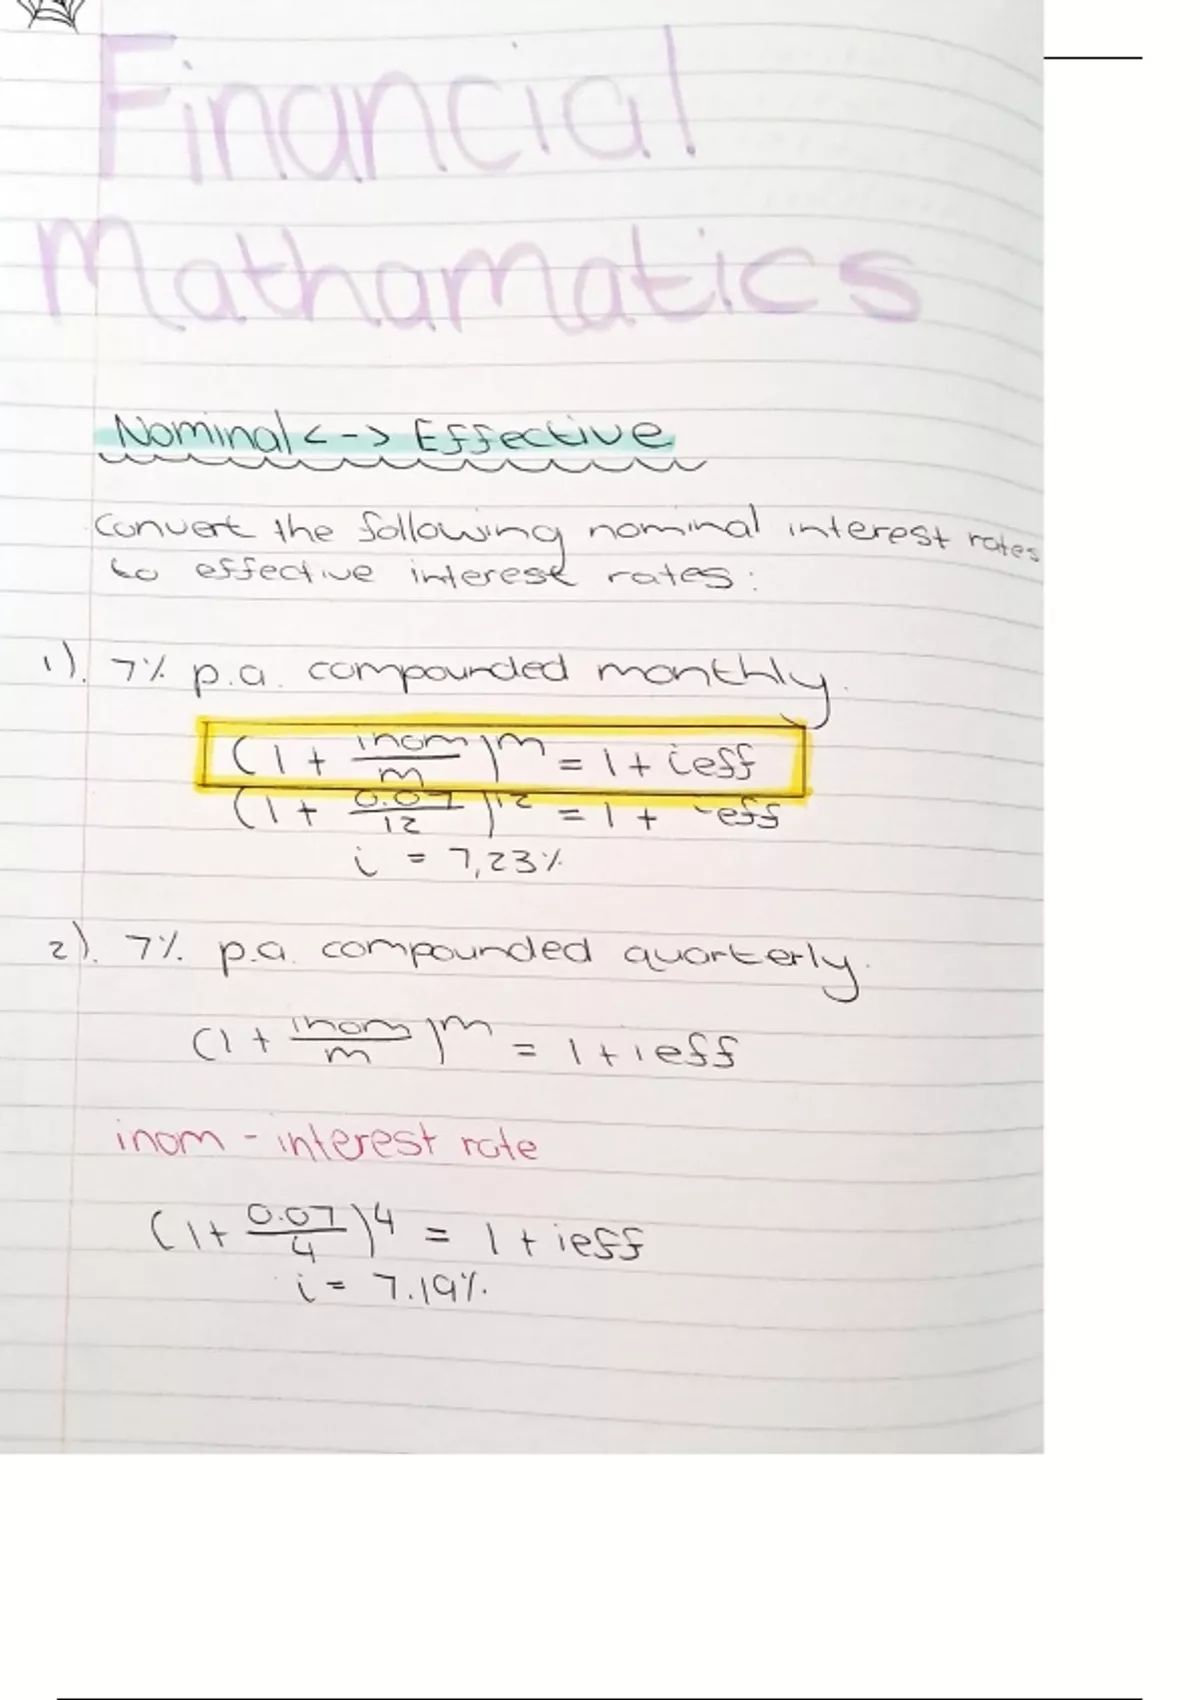 Financial
Mathamatics
Nominal <-> Effective
Convert the following nominal interest rates
to effective interest rates:
1). 7% p.a. compounded monthly.
(1 + inom/m)^m = 1 + ieff
(1 + 0.07/12)^12 = 1 + ieff
i = 7,23%
2). 7% p.a. compounded quarterly.
(1 + inom/m)^m = 1 + ieff
inom - interest rate
(1 + 0.07/4)^4 = 1 + ieff
i = 7.19%.